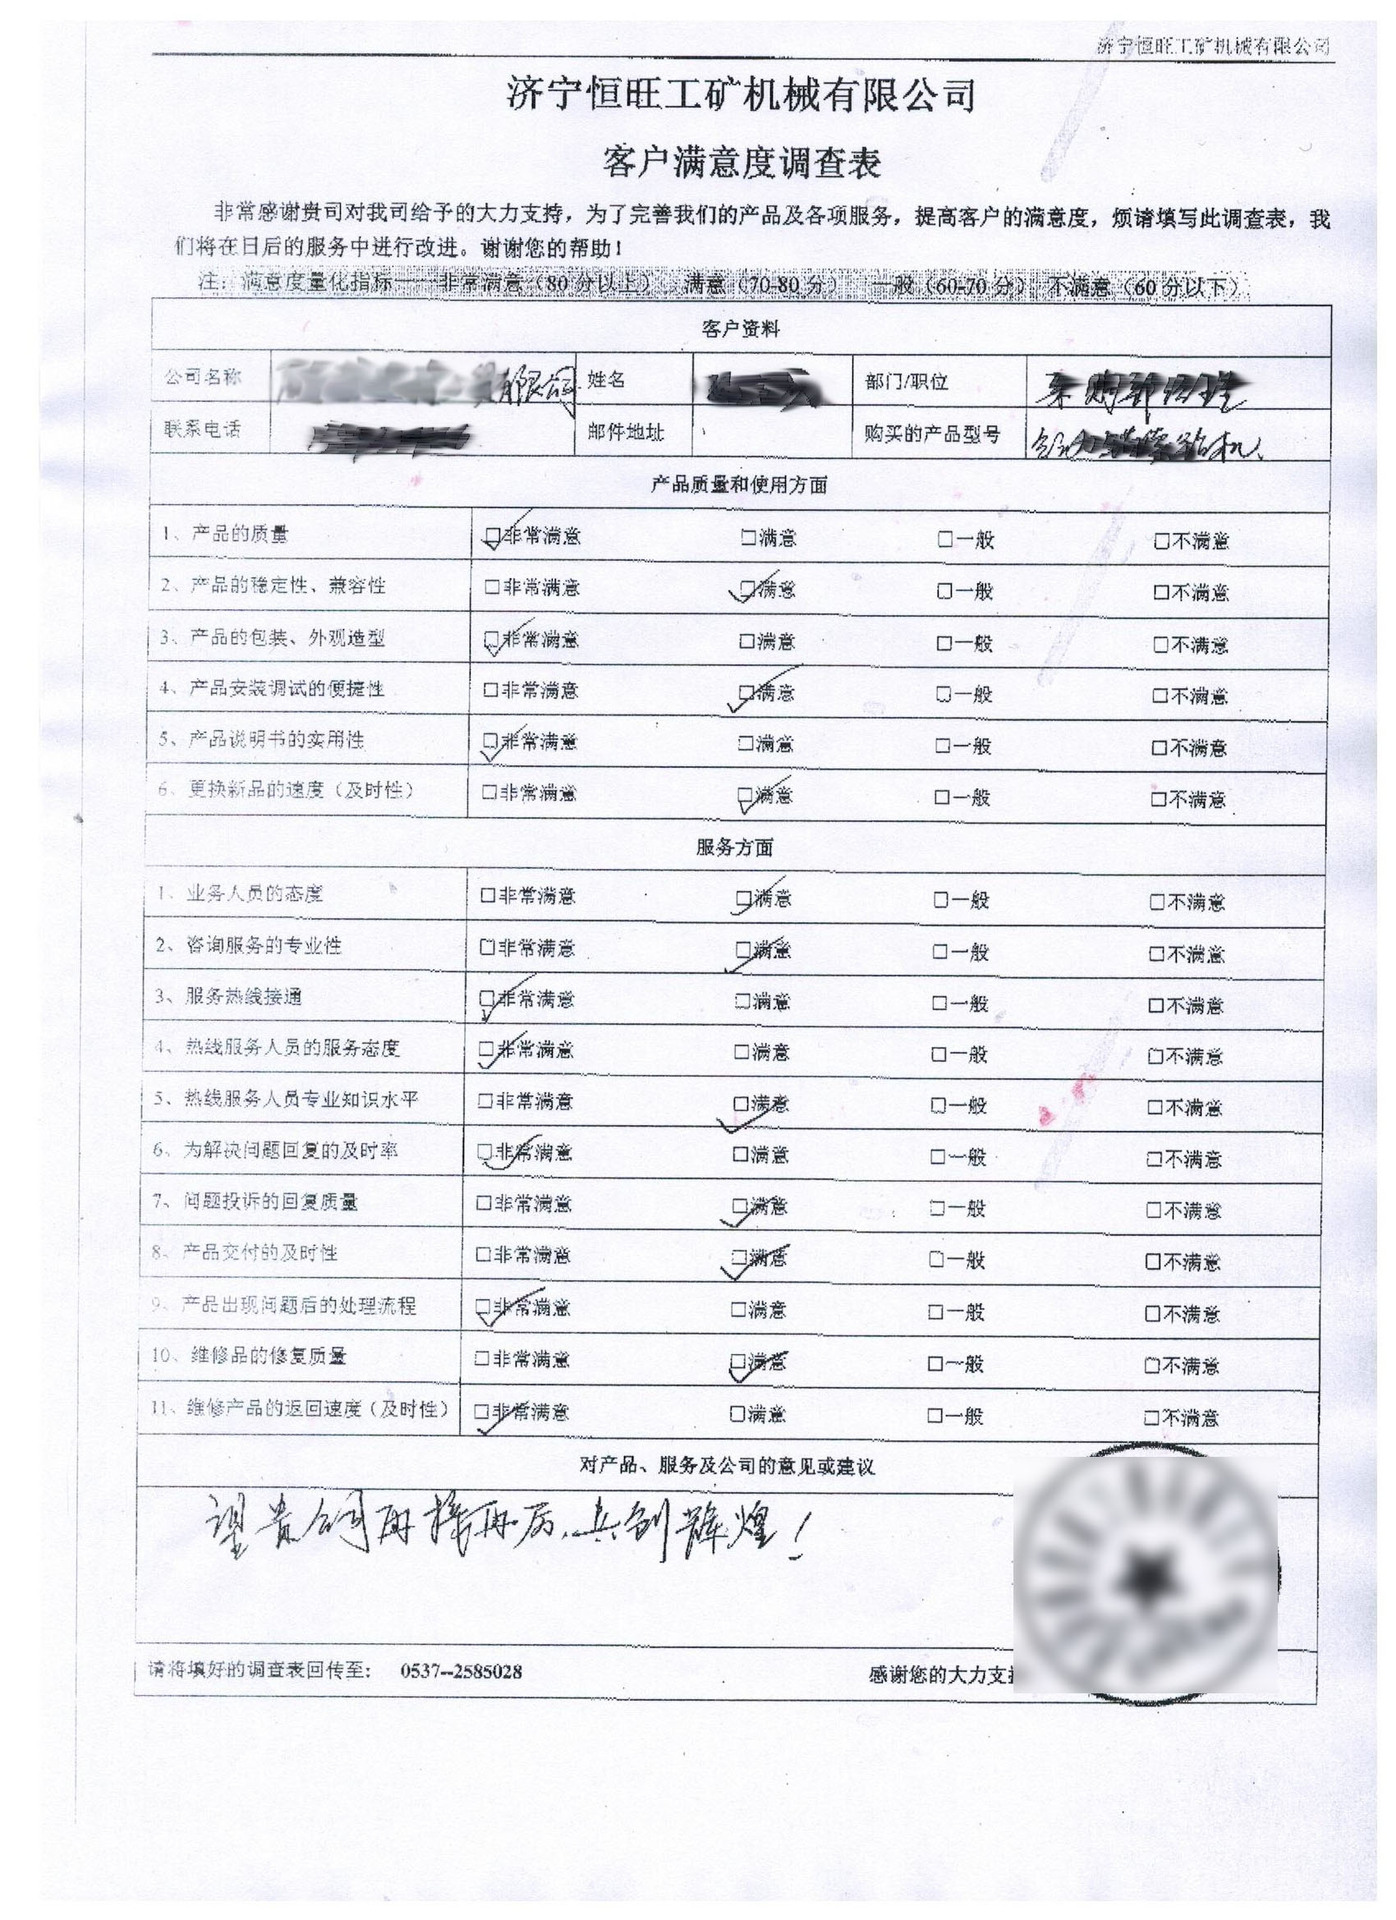 济宁恒旺工矿机械有限公司
济宁恒旺工矿机械有限公司
客户满意度调查表
非常感谢贵司对我司给予的大力支持，为了完善我们的产品及各项服务，提高客户的满意度，烦请填写此调查表，我
们将在日后的服务中进行改进。谢谢您的帮助！
注：满意度量化指标——非常满意（80分以上） 满意（70-80分） 一般（60-70分） 不满意（60分以下）
客户资料
公司名称 有限公司 姓名 部门/职位 采购部经理
联系电话 邮件地址 购买的产品型号
产品质量和使用方面
1、产品的质量 □非常满意 □满意 □一般 □不满意
2、产品的稳定性、兼容性 □非常满意 □满意 □一般 □不满意
3、产品的包装、外观造型 □非常满意 □满意 □一般 □不满意
4、产品安装调试的便捷性 □非常满意 □满意 □一般 □不满意
5、产品说明书的实用性 □非常满意 □满意 □一般 □不满意
6、更换新品的速度（及时性） □非常满意 □满意 □一般 □不满意
服务方面
1、业务人员的态度 □非常满意 □满意 □一般 □不满意
2、咨询服务的专业性 □非常满意 □满意 □一般 □不满意
3、服务热线接通 □非常满意 □满意 □一般 □不满意
4、热线服务人员的服务态度 □非常满意 □满意 □一般 □不满意
5、热线服务人员专业知识水平 □非常满意 □满意 □一般 □不满意
6、为解决问题回复的及时率 □非常满意 □满意 □一般 □不满意
7、问题投诉的回复质量 □非常满意 □满意 □一般 □不满意
8、产品交付的及时性 □非常满意 □满意 □一般 □不满意
9、产品出现问题后的处理流程 □非常满意 □满意 □一般 □不满意
10、维修品的修复质量 □非常满意 □满意 □一般 □不满意
11、维修产品的返回速度（及时性） □非常满意 □满意 □一般 □不满意
对产品、服务及公司的意见或建议
望贵公司再接再厉，共创辉煌！
请将填好的调查表回传至： 0537--2585028 感谢您的大力支持